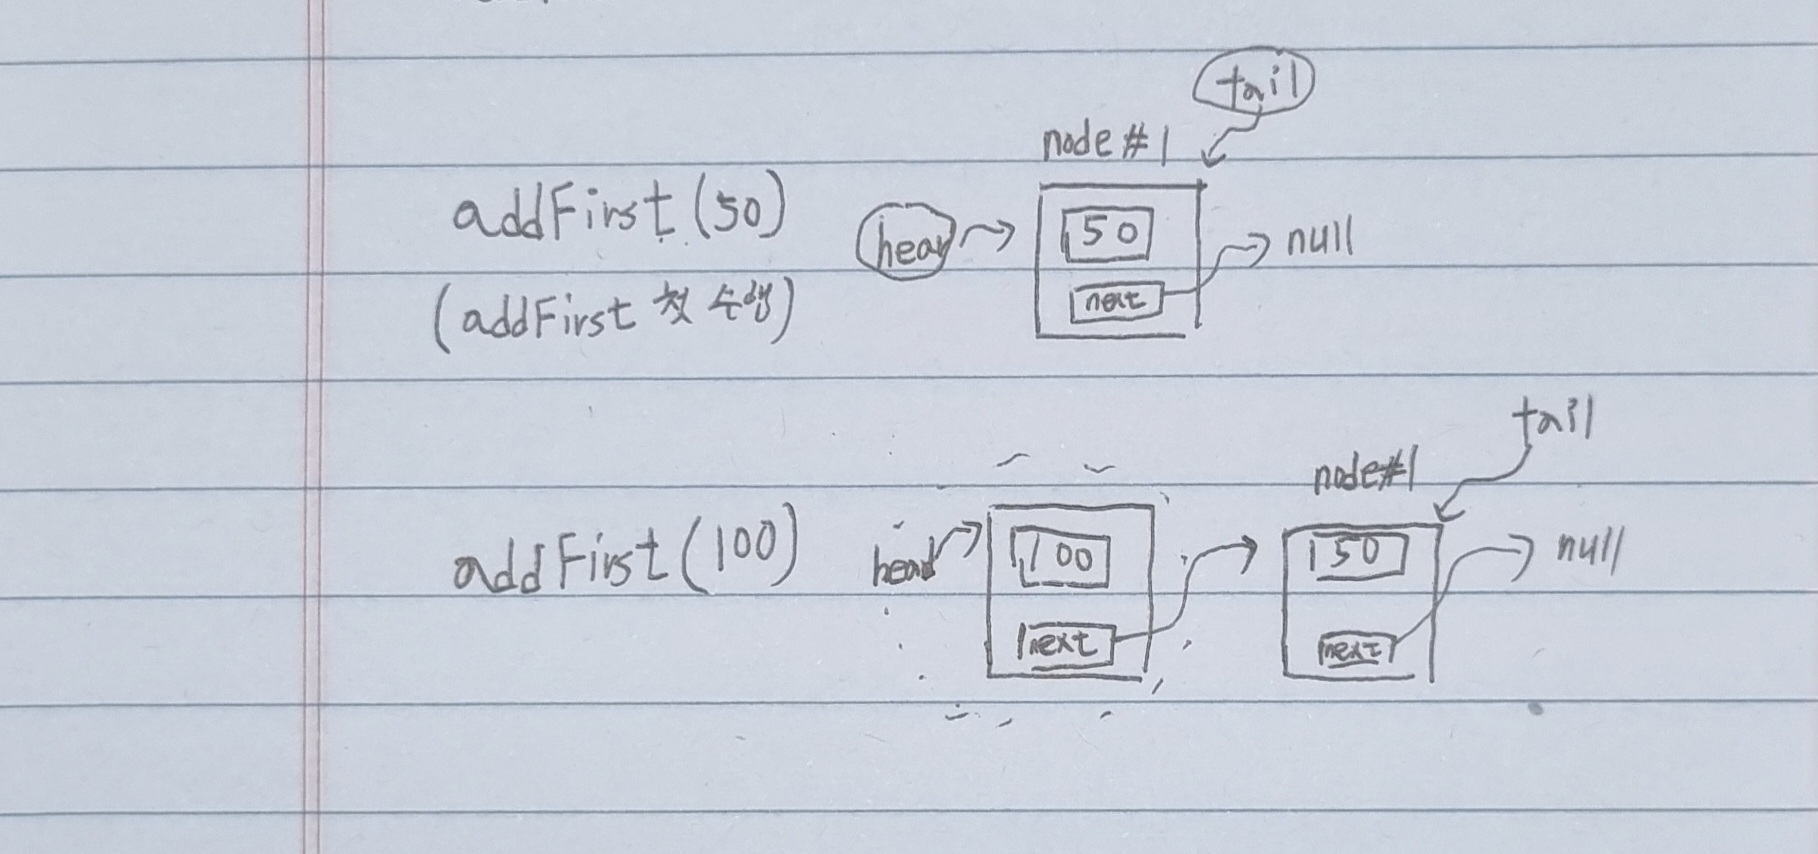 tail
node #1
addFirst (50)
head
50
null
next
(addFirst 첫 수행)
tail
node#1
addFirst (100)
head
100
50
null
next
next